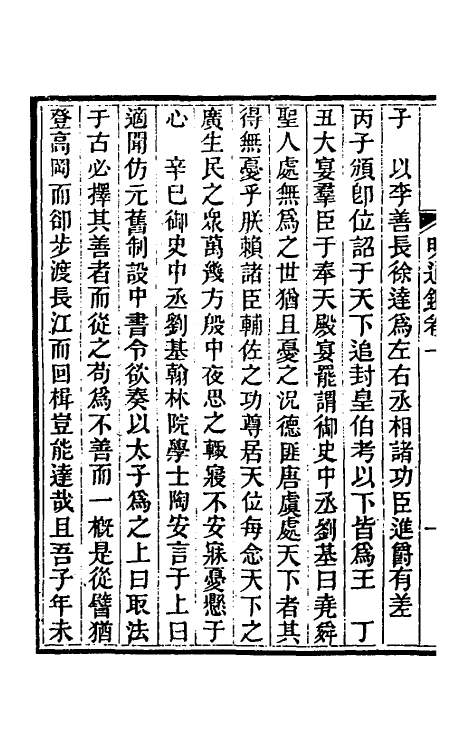 明通鑑卷一
一
子　以李善長徐達爲左右丞相諸功臣進爵有差
丙子頒卽位詔于天下追封皇伯考以下皆爲王　丁
丑大宴羣臣于奉天殿宴罷謂御史中丞劉基曰堯舜
聖人處無爲之世猶且憂之況德匪唐虞處天下者其
得無憂乎朕賴諸臣輔佐之功尊居天位每念天下之
廣生民之衆萬幾方殷中夜思之輒寢不安寐憂懸于
心　辛巳御史中丞劉基翰林院學士陶安言于上曰
適聞仿元舊制設中書令欲奏以太子爲之上曰取法
于古必擇其善者而從之苟爲不善而一概是從譬猶
登高岡而卻步渡長江而回楫豈能達哉且吾子年未